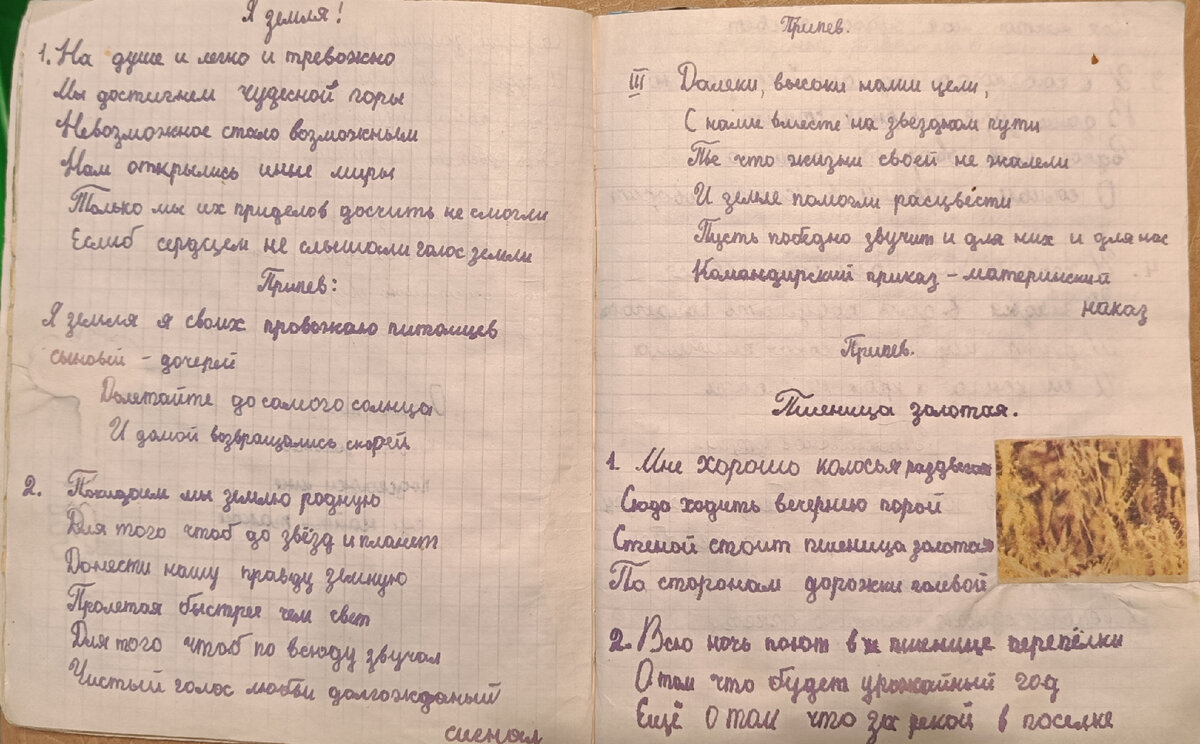 Я земля!
1. На душе и легко и тревожно
Мы достигнем чудесной горы
Невозможное стало возможным
Нам открылись иные миры
Только мы их приделов досчить не смогли
Еслиб сердсцем не слышали голос земли
Припев:
Я земля я своих провожаю питанцев
сыновый - дочерей
Долетайте до самого солнца
И домой возвращались скорей
2. Покидаем мы землю родную
Для того чтоб до звёзд и планет
Донести нашу правду земную
Пролетая быстрее чем свет
Для того чтоб по всюду звучал
Чистый голос любви долгожданый
сигнал
Припев.
III Далеки, высоки наши цели,
С нами вместе на звездном пути
Те что жизни своей не жалели
И земле помогли расцвести
Пусть победно звучит и для них и для нас
Командирский приказ - материнский
наказ
Припев.
Пшеница золотая.
1. Мне хорошо колосья раздвегая
Сюда ходить вечернию порой
Стеной стоит пшеница золотая
По сторонам дорожки полевой
2. Всю ночь поют в пшенице перепёлки
О том что будет урожайный год
Ещё о том что за рекой в поселке